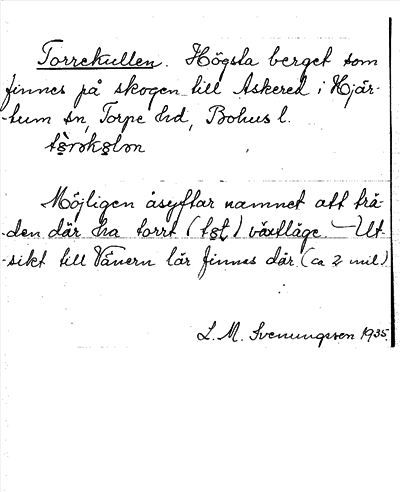 Torrekullen. Högsta berget som
finnes på skogen till Askered i Hjär-
tum sn, Torpe hd, Bohus l.
Möjligen åsyftar namnet att trä-
den där ha torrt ( ) växtläge. – Ut-
sikt till Vänern lär finnas där (ca 2 mil)
L. M. Svenungsson 1935.